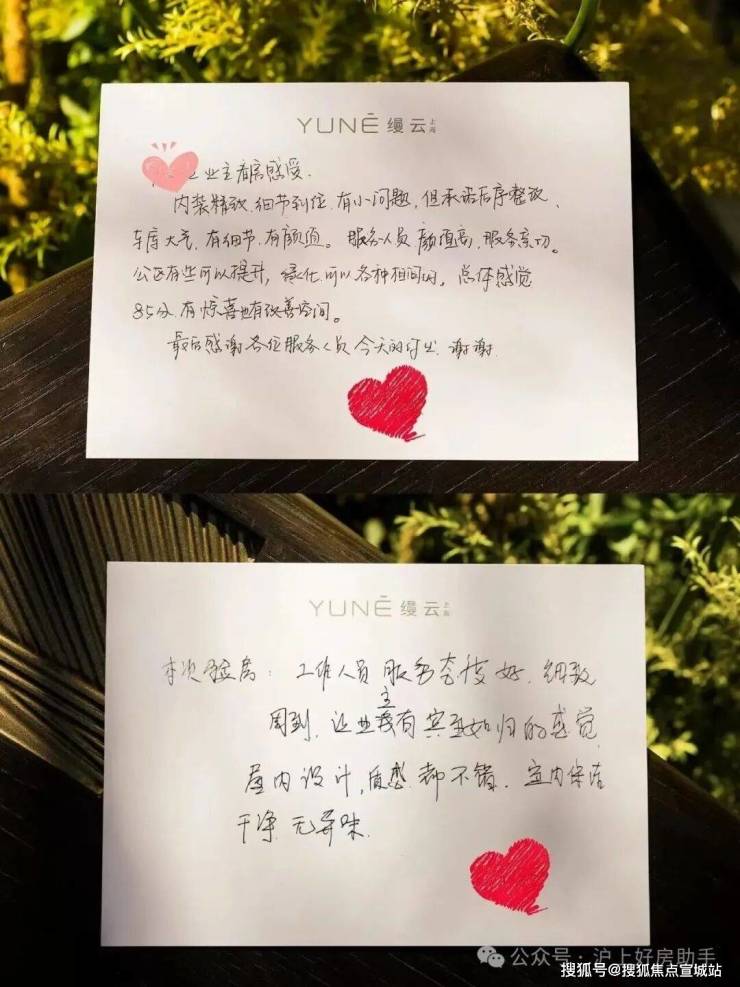 YUNĒ 缦云 上海
业主看房感受.
内装精致.细节到位.有小问题,但承诺后序整改、
车库大气,有细节.有颜值。服务人员颜值高,服务亲切。
公区有些可以提升,绿化可以各种相间的。总体感觉
85分.有惊喜也有改善空间。
最后感谢各位服务人员今天的付出.谢谢.
YUNĒ 缦云 上海
本次验房: 工作人员服务态度好.细致
周到.让业主有宾至如归的感觉
屋内设计,质感都不错.室内保洁
干净无异味.
公众号·沪上好房助手
搜狐号@搜狐焦点宣城站